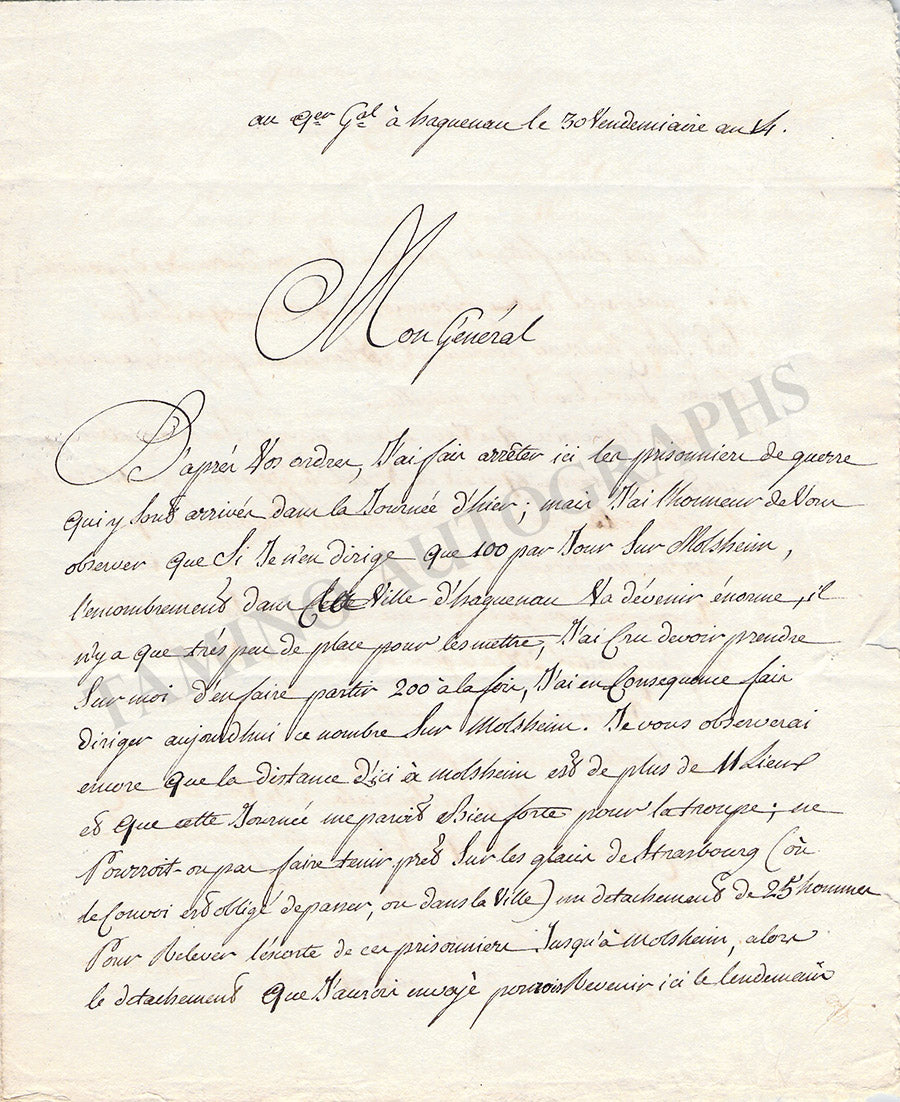 au qer Gal à haguenau le 30 Vendemiaire an 14.
Mon Général
D'aprés Vos ordres, J'ai fait arrêter ici les prisonniers de guerre
qui y sont arrivés dans la Journée d'hier; mais J'ai l'honneur de Vous
observer que Si Je n'en dirige que 100 par Jour Sur Molsheim,
l'encombrement dans Cette Ville d'haguenau Va dévenir énorme, il
n'y a que trés peu de place pour les mettre, J'ai Cru devoir prendre
Sur moi d'en faire partir 200 à la fois, J'ai en Consequence fait
diriger aujourdhui ce nombre Sur Molsheim. Je vous observerai
encore que la distance d'ici à molsheim est de plus de 11 Lieues
et que cette Journée me paroit bien forte pour la troupe; ne
Pourroit-on pas faire tenir prêt Sur les glacis de Strasbourg (où
le Convoi est obligé de passer, ou dans la Ville) un detachement de 25 hommes
Pour Relever l'escorte de ces prisonniers Jusqu'à Molsheim, alors
le detachement que J'aurois envoyé pourrois Revenir ici le lendemain
TAMINO AUTOGRAPHS